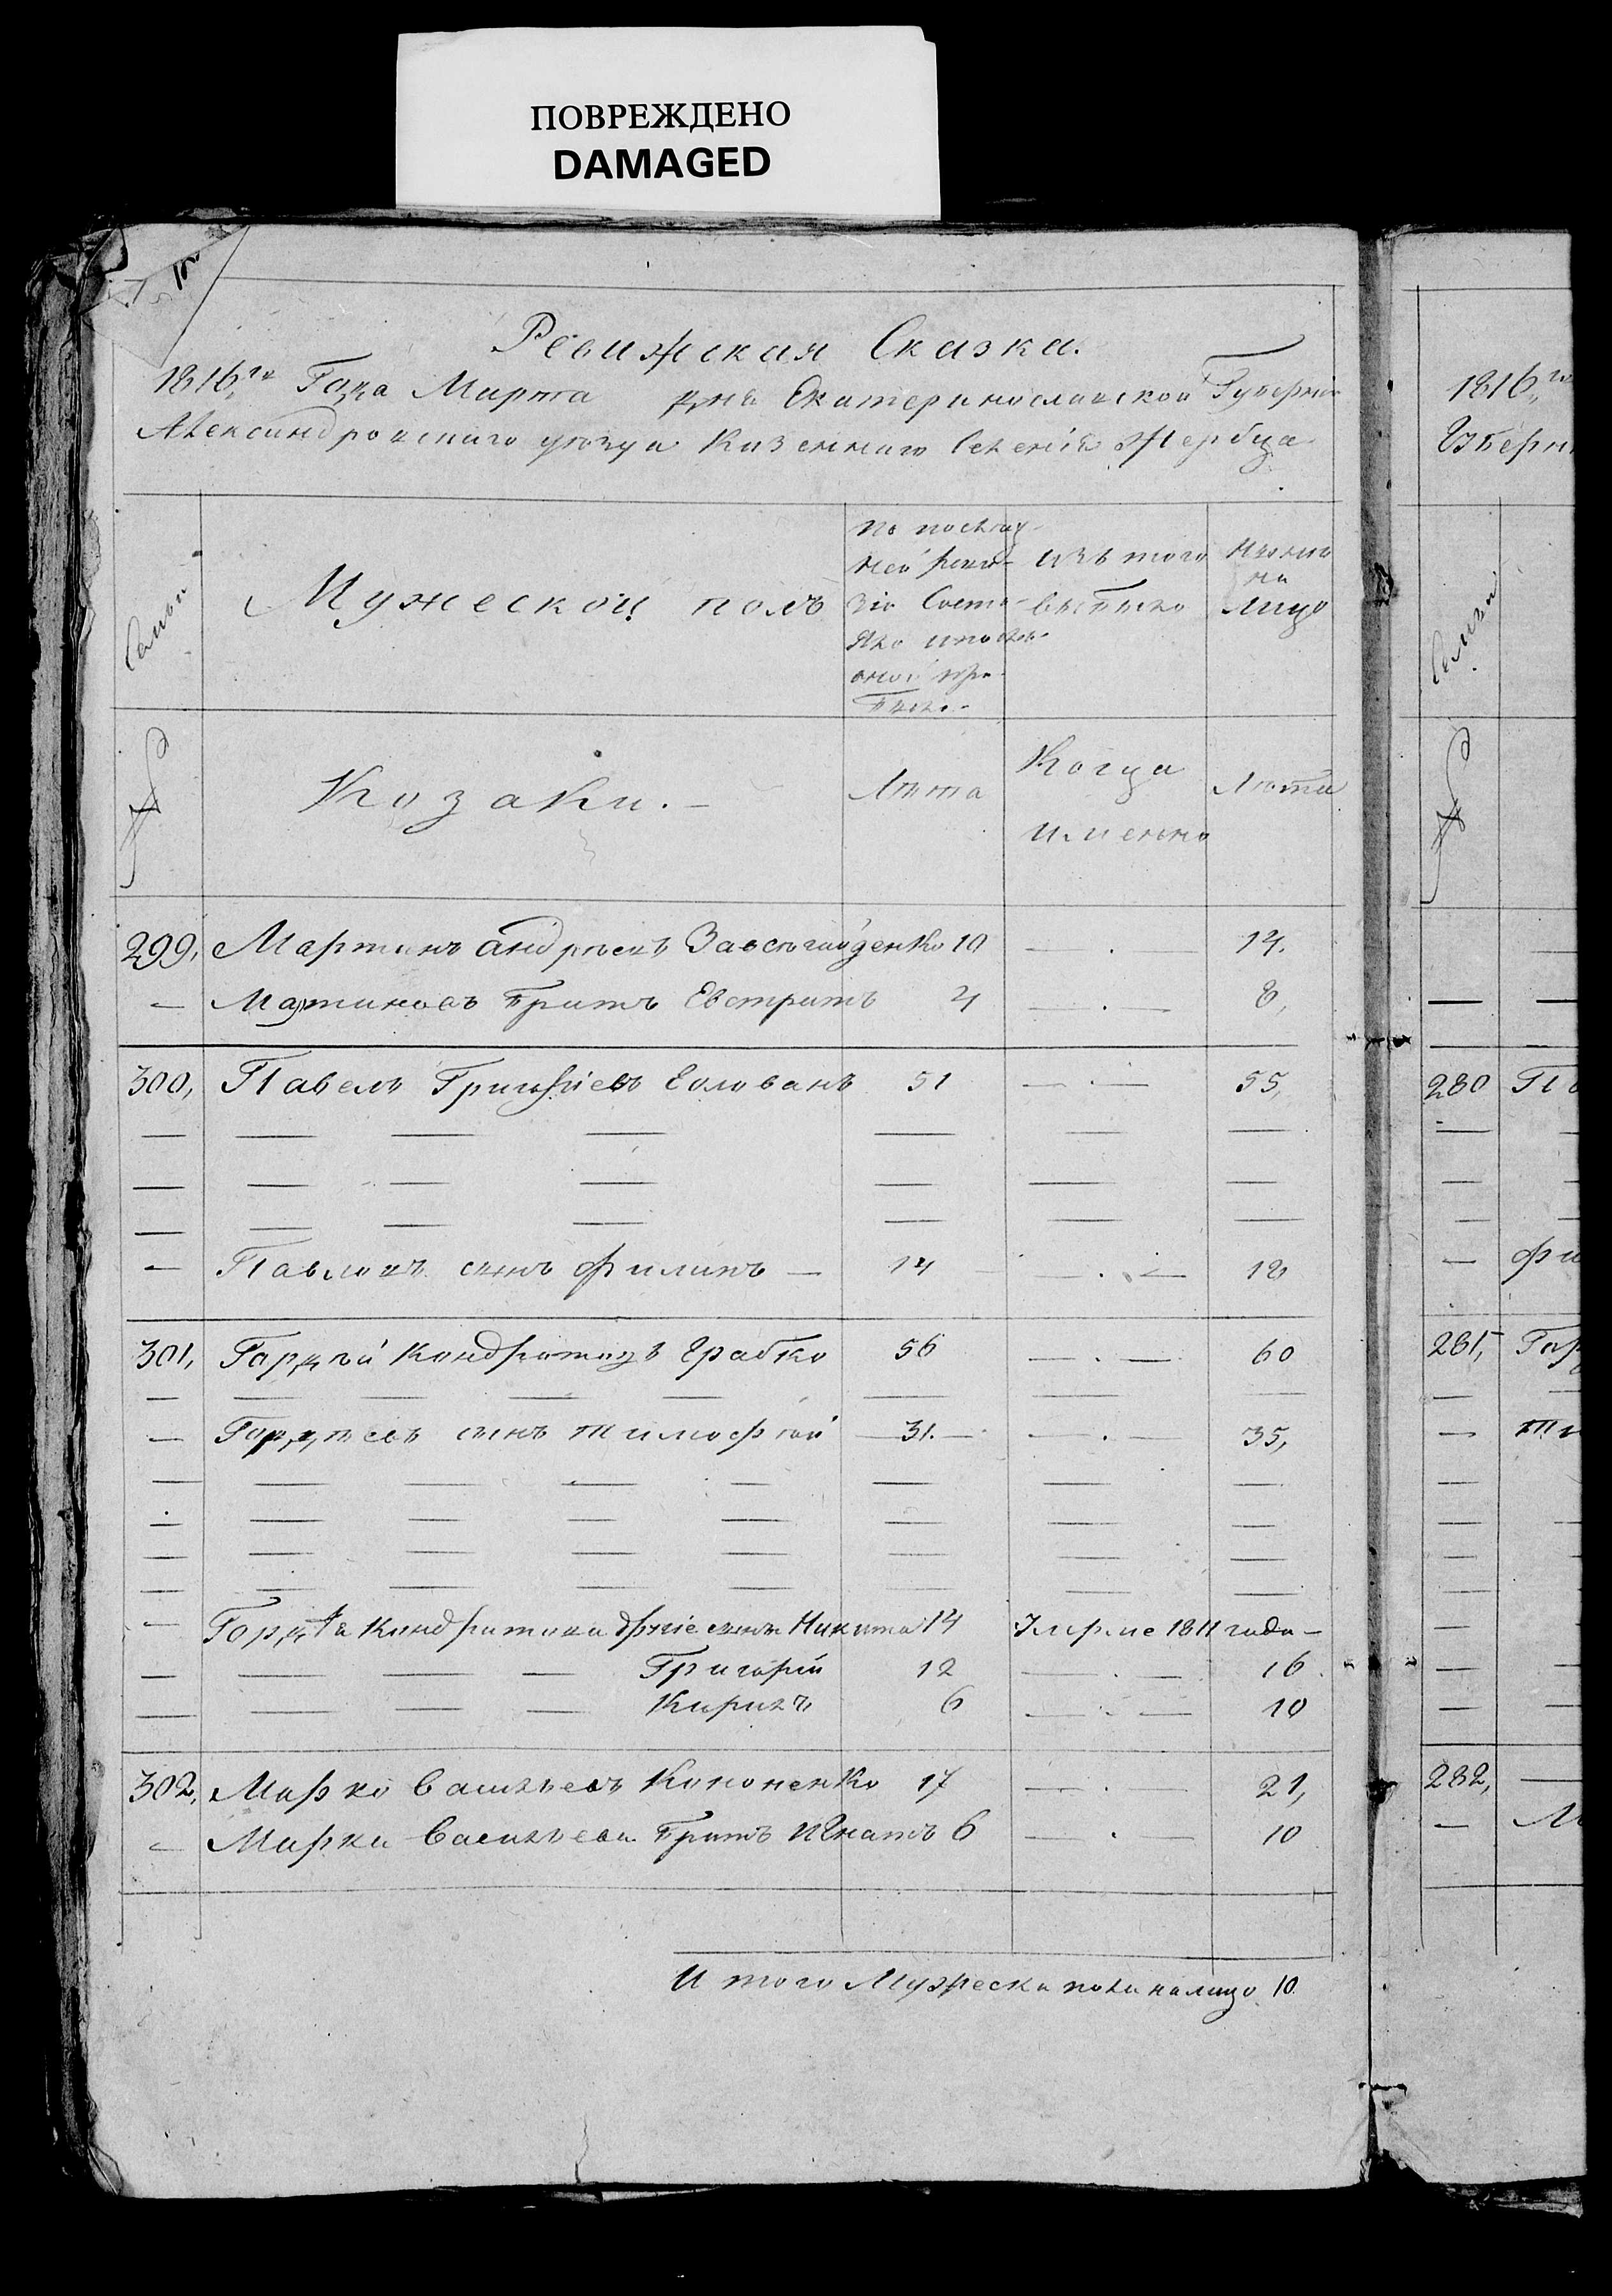 ПОВРЕЖДЕНО
DAMAGED
Ревижская Сказка.
1816го Года Марта дня Екатеринославской Губернии
Александровского уезда Казенного Селенія Жербца
Семьи
Мужеской полъ
по послед-
ней реви-
зіи Состо-
яло и после
оной при-
было
изъ того
выбыло
Ныне
на
лицо
№
Козаки.
Лѣта
Когда
именно
Лѣта
299, Мартинъ андрѣевъ Завсегайденко 10 — . — 14.
— Мартиновъ братъ Евстратъ 4 — . — 8,
300, Павелъ Григоріевъ Голованъ 51 — . — 55,
— Павловъ сынъ филипъ — 14 — . — 18
301, Гордѣй Кондратовъ Грабко 56 — . — 60
— Гордѣевъ сынъ тимофѣй 31. — . — 35,
— Гордѣя Кондратова Никита 14 Умре 1811 года —
— Григорій 12 — . — 16
— Кирилъ 6 — . — 10
302, Марко Васильевъ Кононенко 17 — . — 21,
— Марка Васильева братъ Игнатъ 6 — . — 10
Итого Мужеска пола налицо 10
1816го
Семьи
№
280
фи
281, Гор
ти
282,